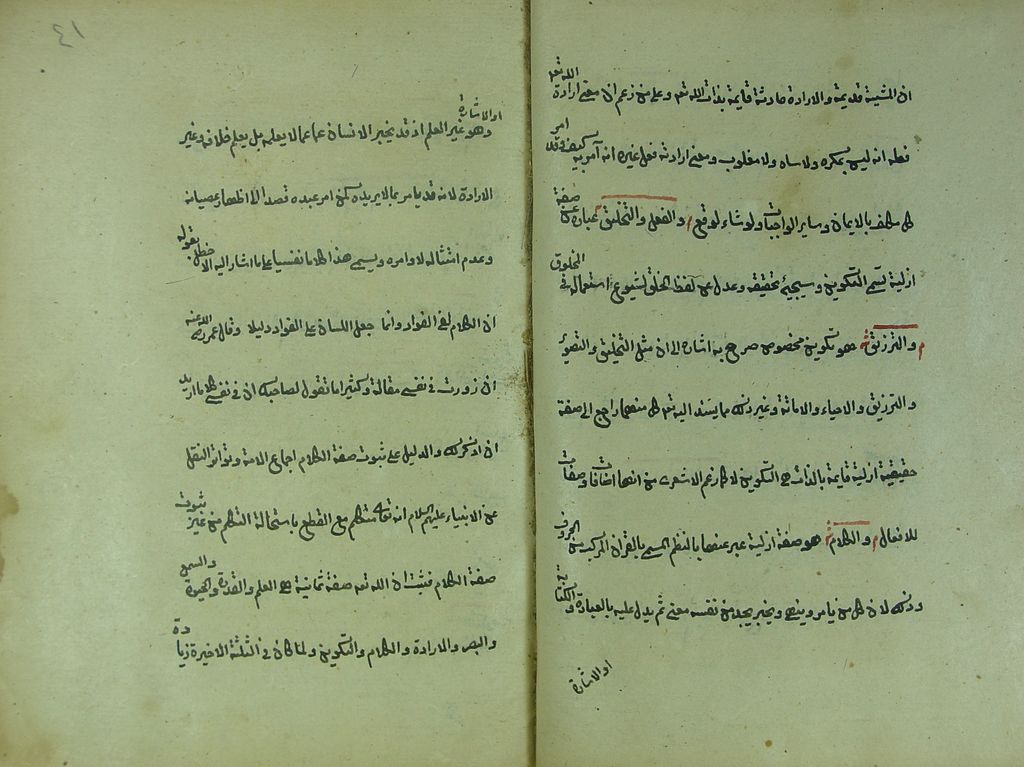 ان المشية قديمة والارادة حادثة قايمة بذات الله تعه وعلى من زعم ان معنى ارادة الله تعه
فعله انه ليس بمكره ولا ساه ولا مغلوب ومعنى ارادته فعل غيره انه آمر به كيف وقد امر
كل مكلف بالايمان وساير الواجبات ولو شاء لوقع م والفعل والتخليق ش عبارة عن صفة
ازلية تسمى التكوين وسيجيئ تحقيقه وعدل عن لفظ الخلق لشيوع استعماله في المخلوق
م والترزيق ش هو تكوين مخصوص صرح به اشارة الى ان مثل التخليق والتصوير
والترزيق والاحياء والاماتة وغير ذلك مما يسند اليه تعه كل منها راجع الى صفة
حقيقية ازلية قايمة بالذات هي التكوين لا كما زعم الاشعرى من انها اضافات وصفات
للافعال م والكلام ش هو صفة ازلية عبر عنها بالنظم المسمى بالقران المركب من الحروف
وذلك لان كل من يامر وينهى ويخبر يجد من نفسه معنى ثم يدل عليه بالعبارة والكتابة
او الاشارة
٤١
او الاشارة
وهو غير العلم اذ قد يخبر الانسان عما لا يعلمه بل يعلم خلافه وغير
الارادة لانه قد يامر بما لا يريده كمن امر عبده قصدا الى اظهار عصيانه
وعدم امتثاله لاوامره ويسمى هذا كلاما نفسيا على ما اشار اليه الاخطل بقوله
ان الكلام لفى الفواد وانما جعل اللسان على الفواد دليلا وقال عمر رضى الله عنه
انى زورت في نفسي مقالة وكثيرا ما تقول لصاحبك ان في نفسي كلاما اريد
ان اذكره لك والدليل على ثبوت صفة الكلام اجماع الامة وتواتر النقل
عن الانبياء عليهم السلام انه تعالى متكلم مع القطع باستحالة التكلم من غير ثبوت
صفة الكلام فثبت ان الله تعه صفة ثمانية هى العلم والقدرة والحيوة والسمع
والبصر والارادة والكلام والتكوين ولما كان في الثلثة الاخيرة زيادة